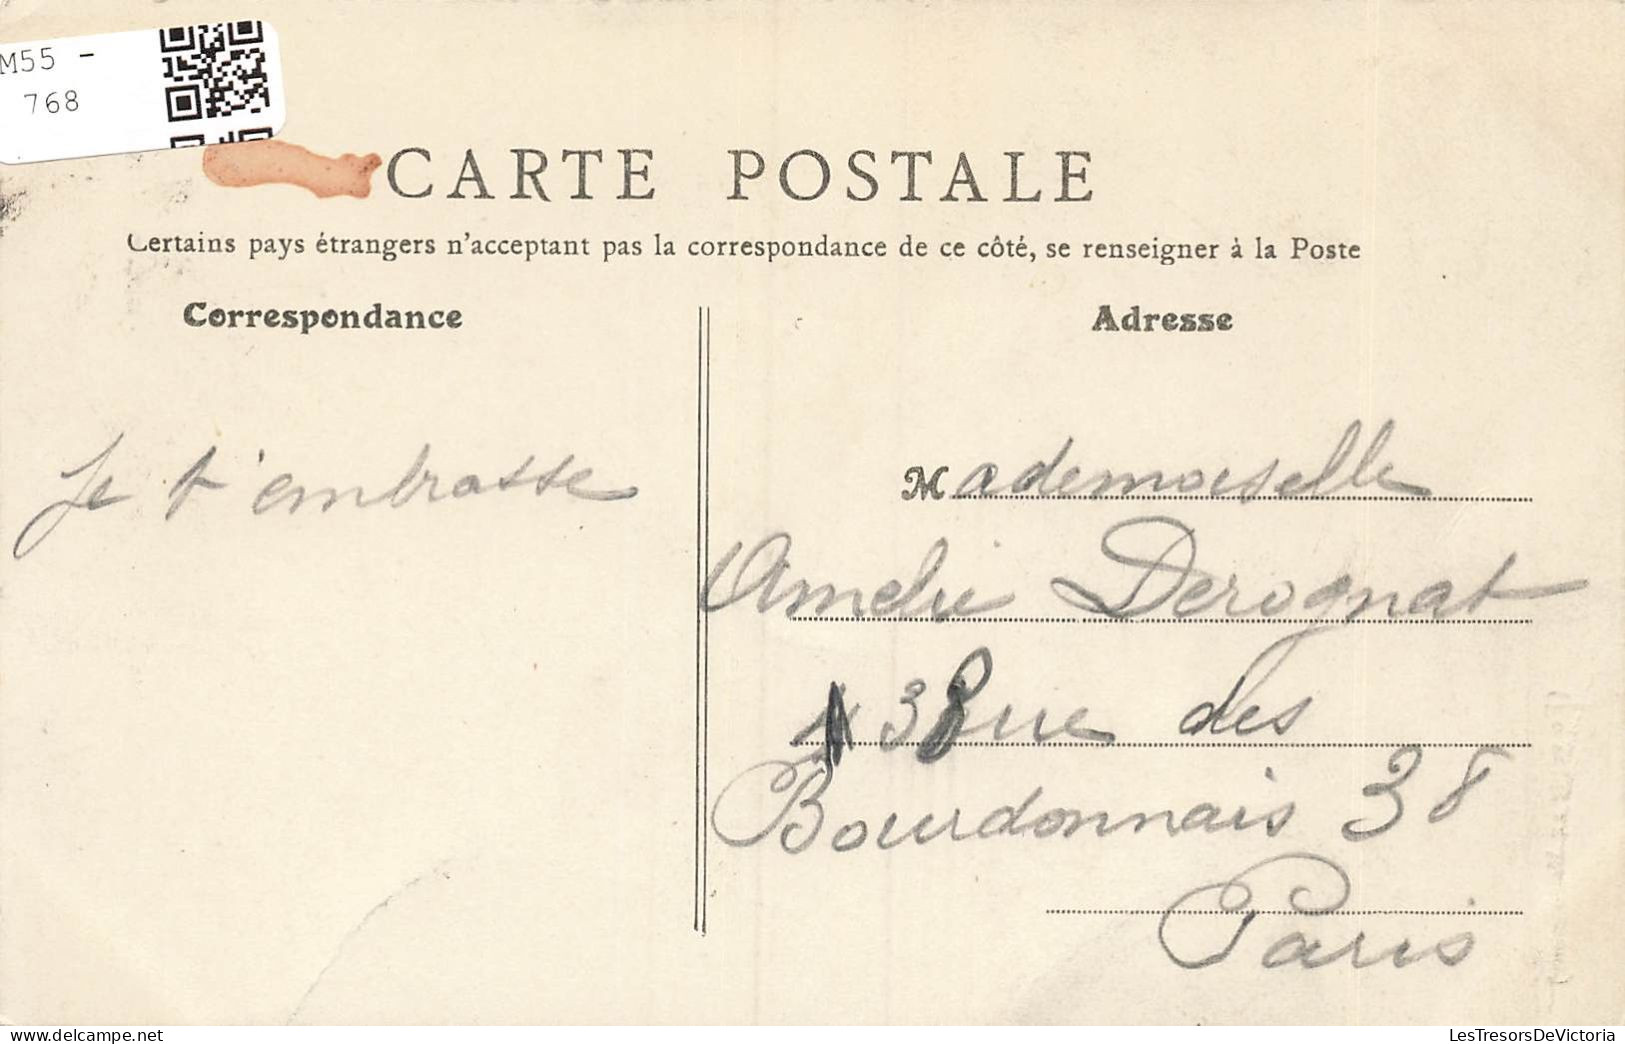 M55 -
768
CARTE POSTALE
Certains pays étrangers n'acceptant pas la correspondance de ce côté, se renseigner à la Poste
Correspondance
Adresse
Je t'embrasse
Mademoiselle
Amelie Derognat
38 rue des
Bourdonnais 38
Paris
delcampe.net
LesTresorsDeVictoria